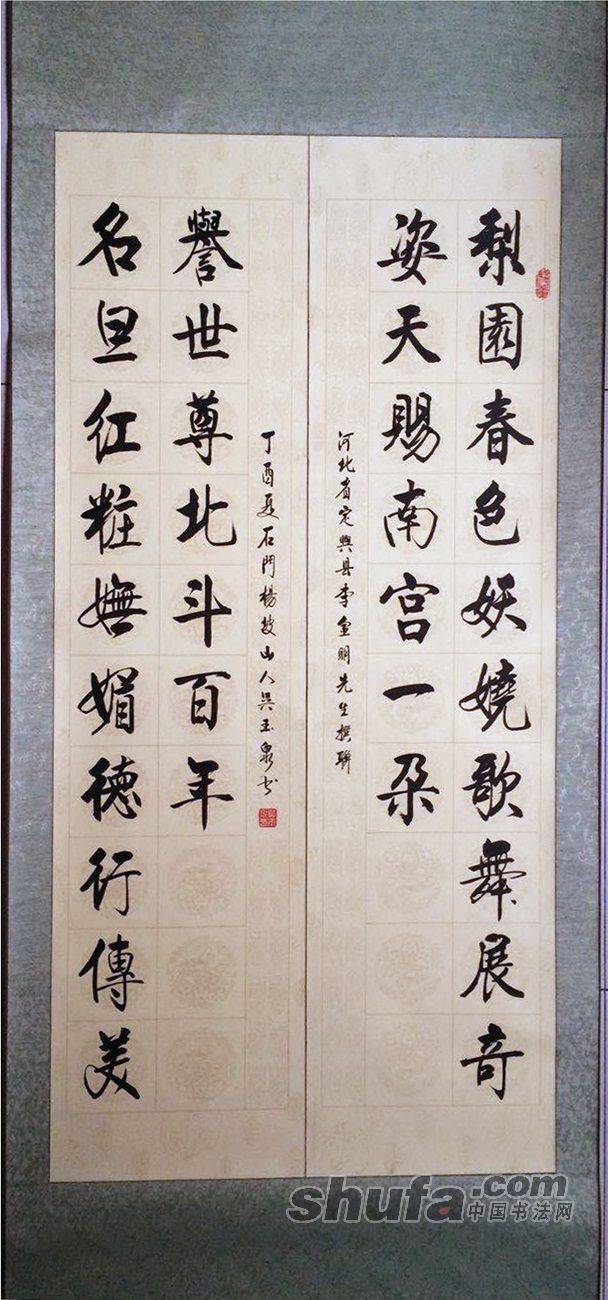 梨園春色妖嬈歌舞展奇
姿天賜南宮一朵
河北省定興县李金明先生撰聯
名旦红粧嫵媚德行傳美
譽世尊北斗百年
丁酉夏石門楊坡山人吴玉泉书
shufa.com
中国书法网